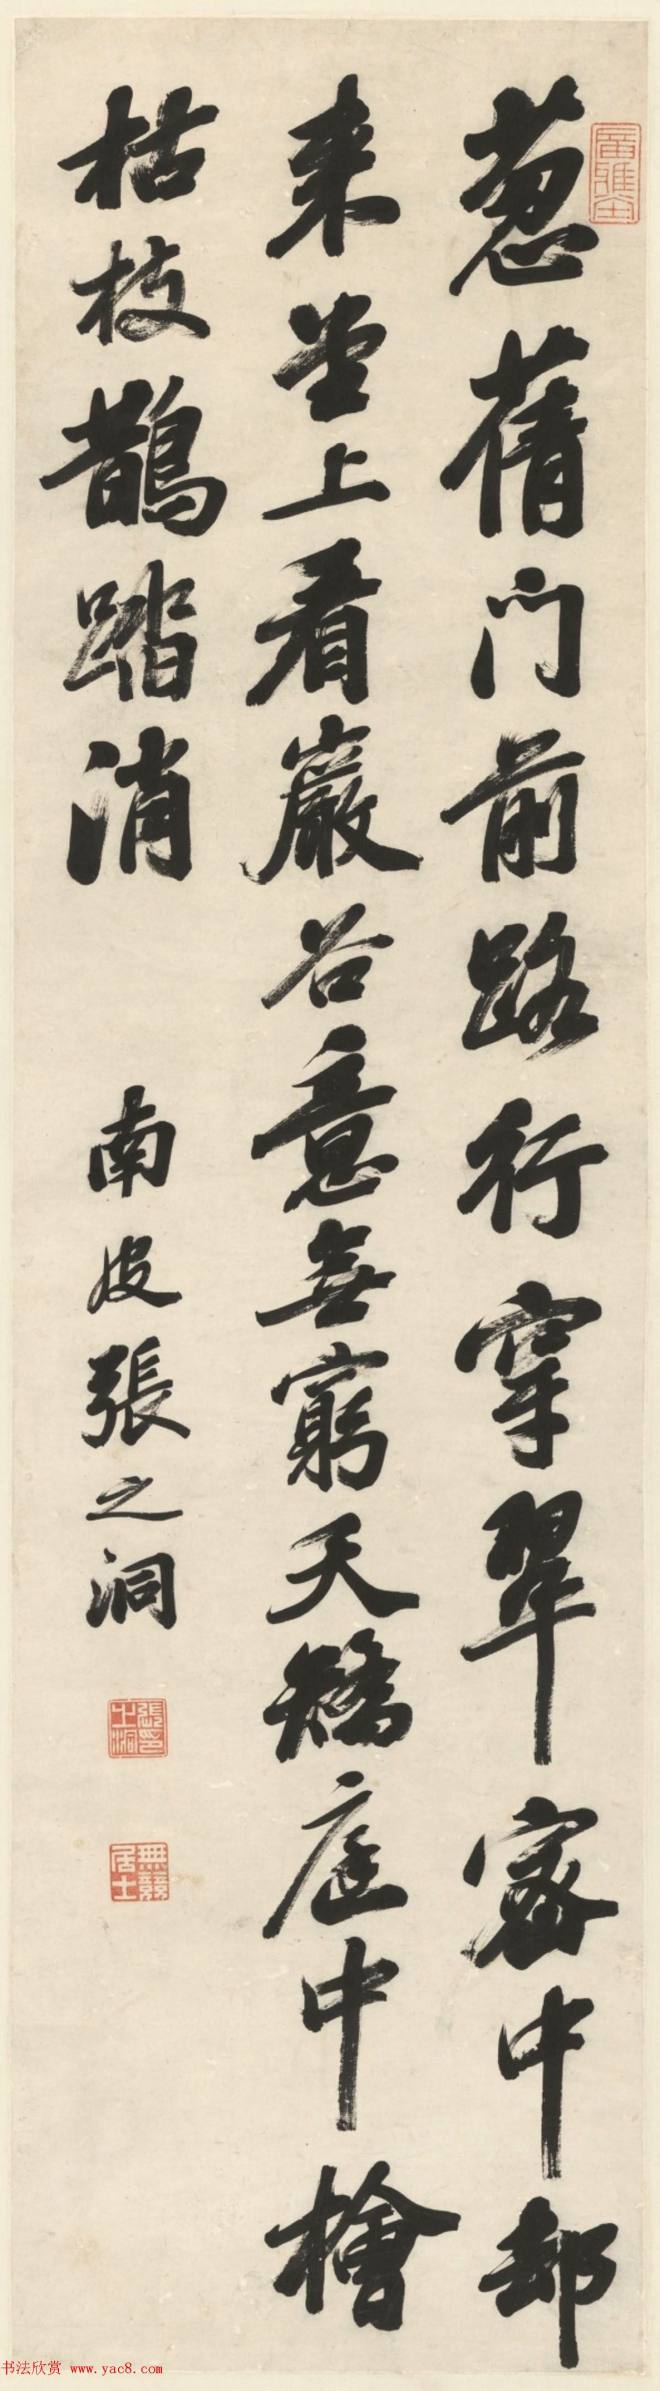 葱蒨門前路行穿翠密中卻
来堂上看巖谷意無窮夭矯庭中檜
枯枝鵲踏消
南皮張之洞
張之洞印
無競居士
书法欣赏 www.yac8.com